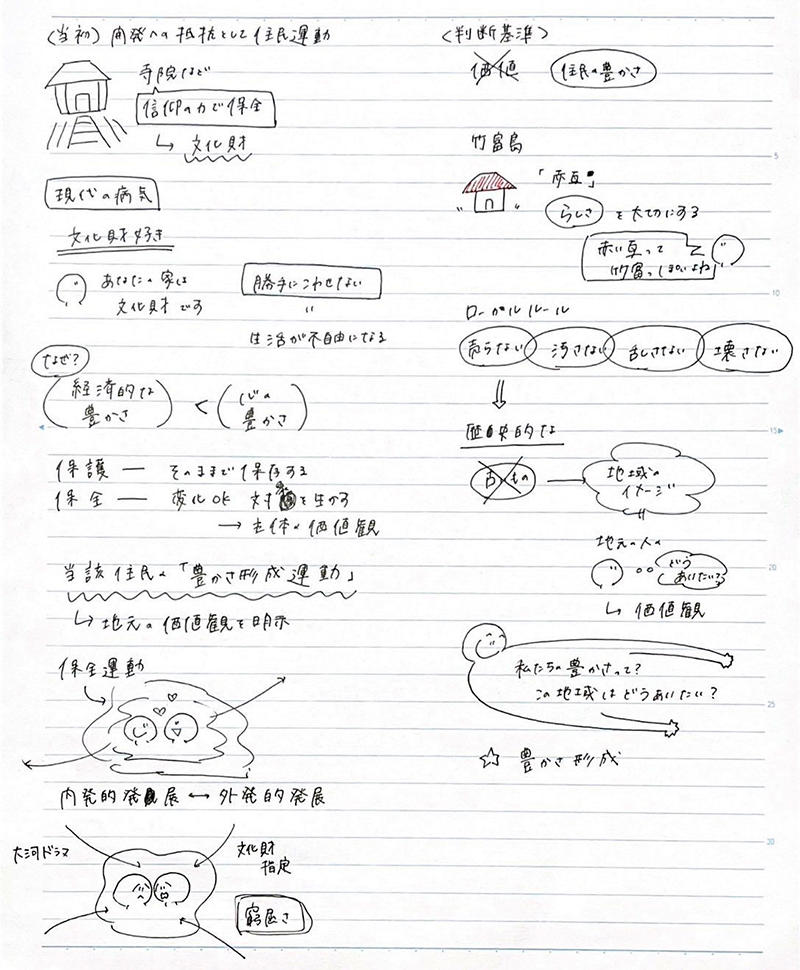 (当初) 開発への抵抗として住民運動
寺院など
信仰の力で保全
↳ 文化財
現代の病気
文化財好き
あなたの家は
文化財です
勝手にこわせない
〃
生活が不自由になる
なぜ?
(経済的な豊かさ) < (心の豊かさ)
保護 — そのままで保存する
保全 — 変化OK 対象を生かす
→ 主体の価値観
当該住民の「豊かさ形成運動」
↳ 地元の価値観を明示
保全運動
内発的発展 ↔ 外発的発展
大河ドラマ
文化財
指定
窮屈さ
(判断基準)
価値 住民の豊かさ
竹富島
「赤瓦」
らしさ を大切にする
赤い瓦って
竹富っぽいよね
ローカルルール
売らない 汚さない 乱さない 壊さない
⇓
歴史的な
古いもの → 地域の
イメージ
地元の人の
どう
ありたい?
↳ 価値観
私たちの豊かさって?
この地域はどうありたい?
☆ 豊かさ形成
5
10
15
20
25
30